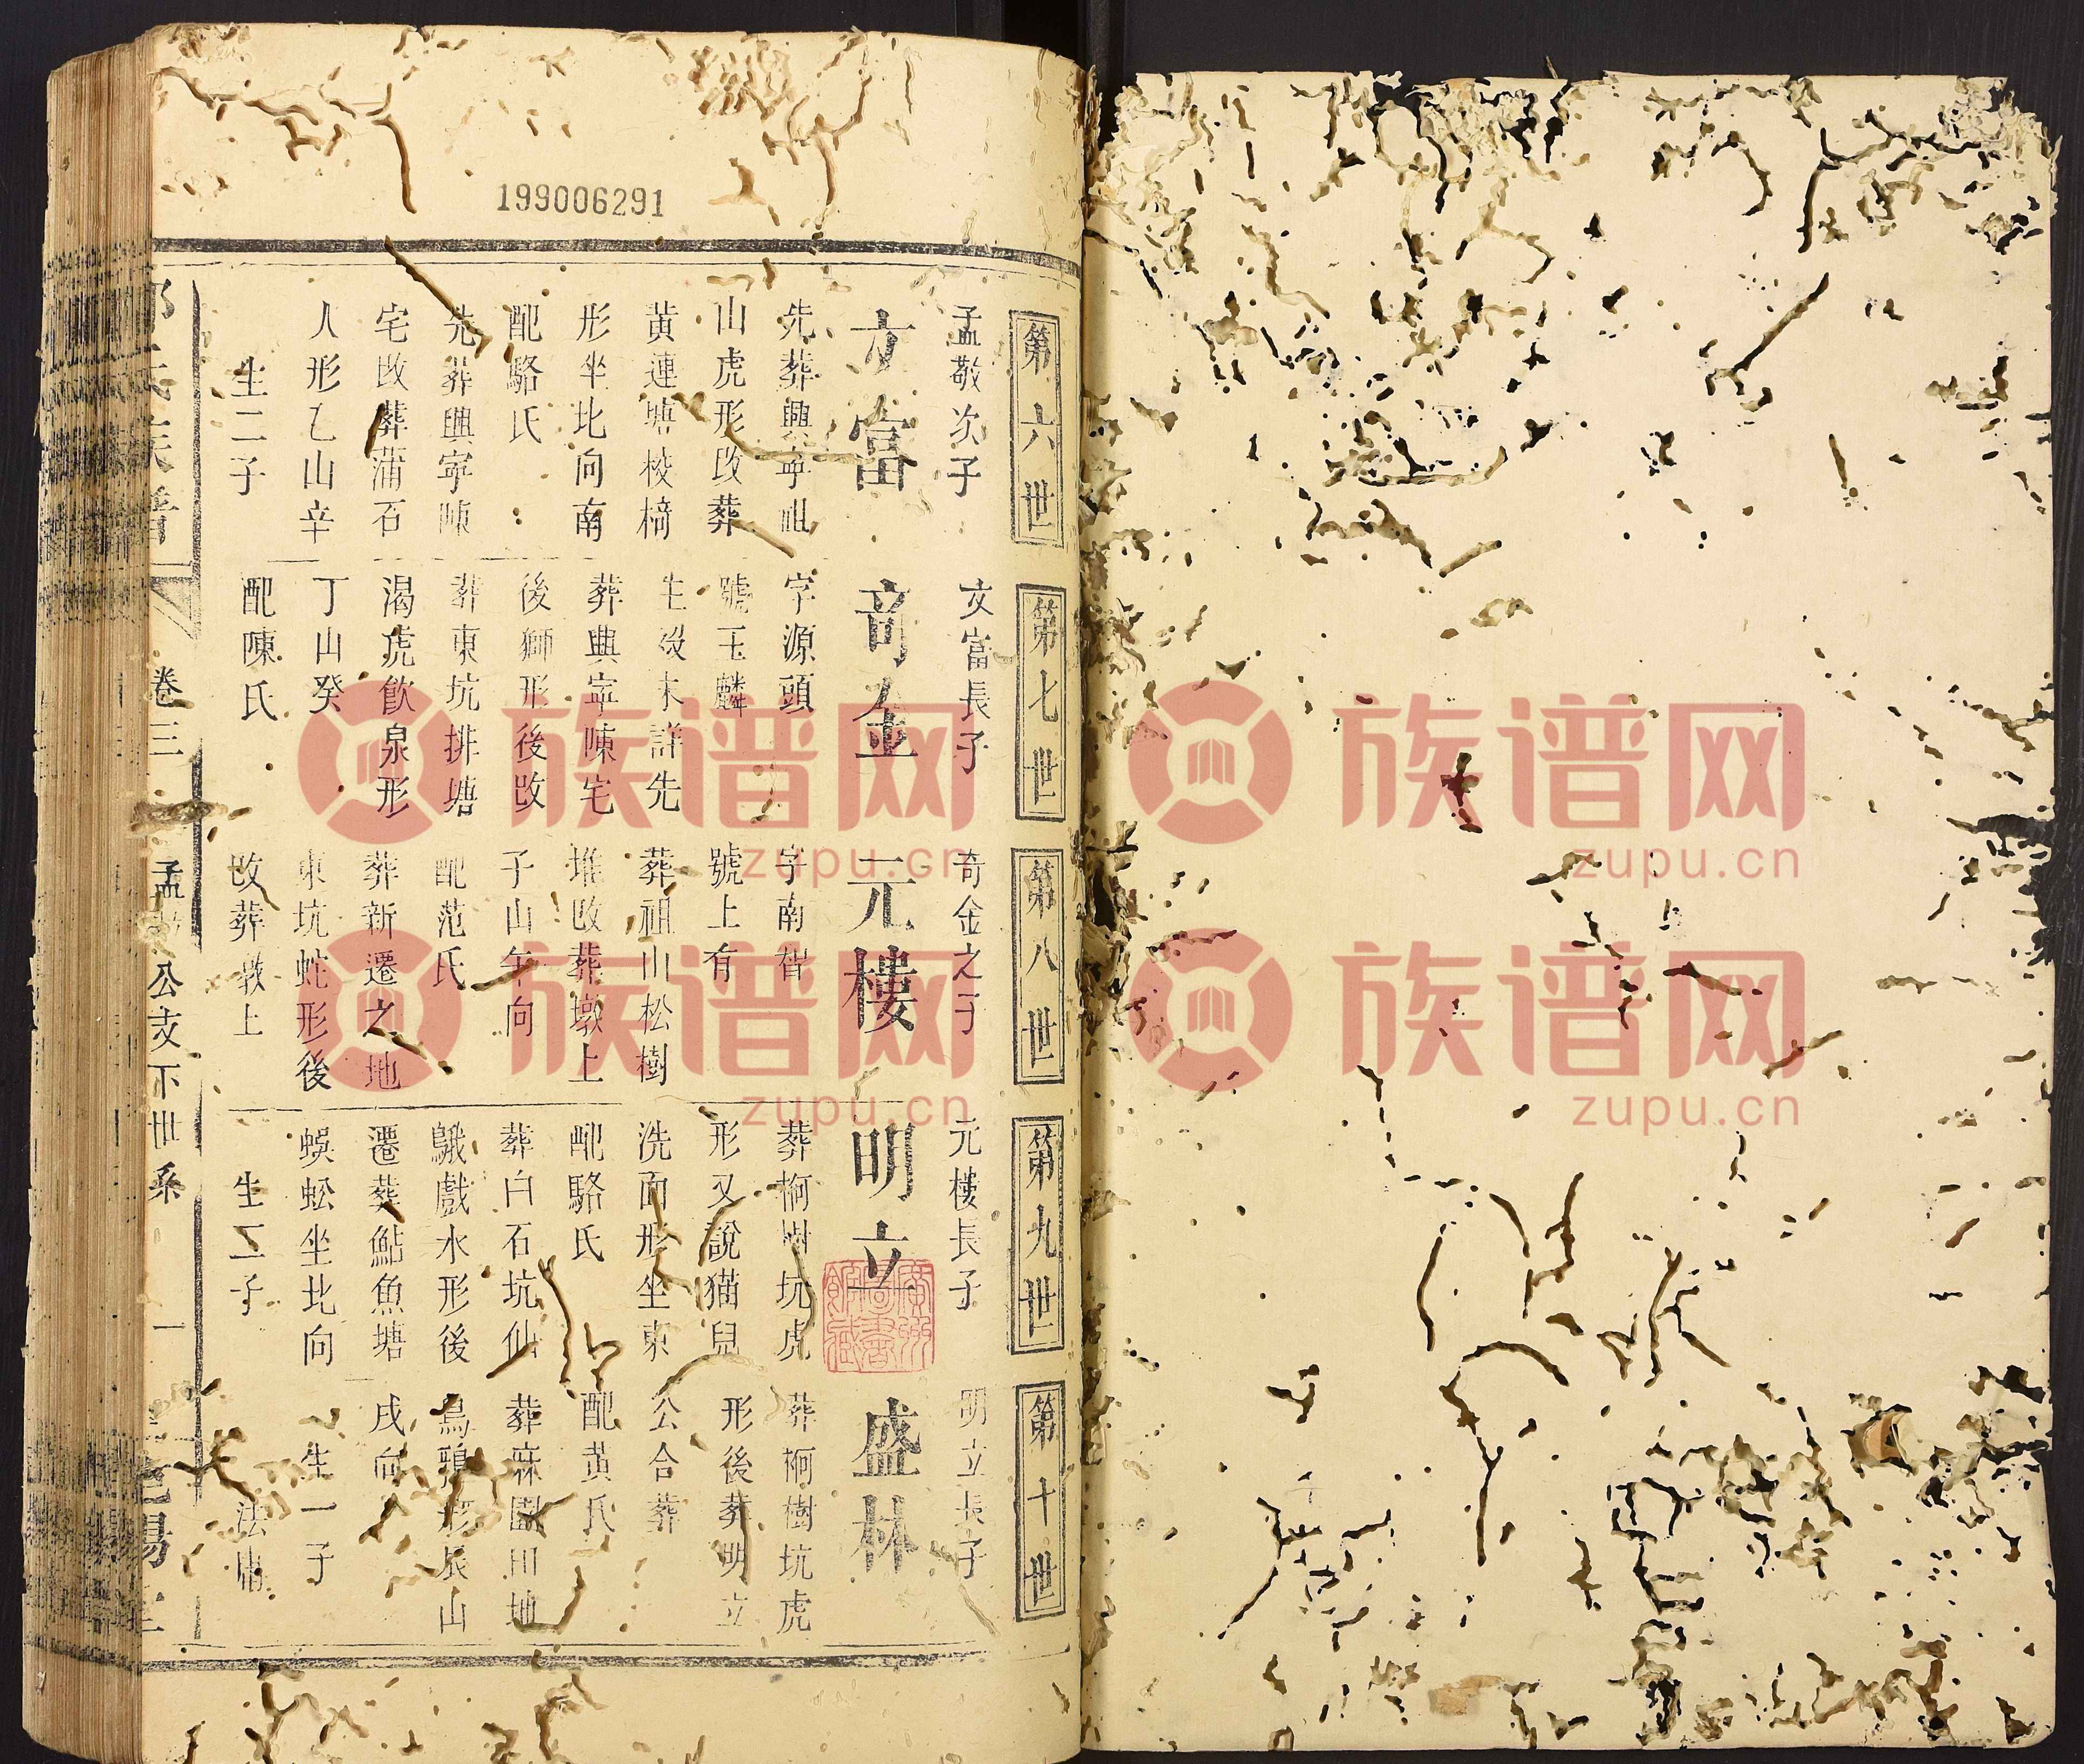 199006291
第六世
孟敬次子
文富
先葬興寧祖
山虎形改葬
黃連塘校椅
形坐北向南
配駱氏
先葬興寧陳
宅改葬蒲石
人形乙山辛
生二子
第七世
文富長子
奇金
字源頭
號玉麟
生歿未詳先
葬興寧陳宅
後獅形後改
葬東坑排塘
渴虎飲泉形
丁山癸
配陳氏
第八世
奇金之子
元樓
字南楷
號上有
葬祖山松樹
堆改葬墩上
子山午向
配范氏
葬新遷之地
東坑蛇形後
改葬墩上
第九世
元樓長子
明立
葬桐樹坑虎
形又說猫兒
洗面形坐東
配駱氏
葬白石坑仙
鵝戲水形後
遷葬鮎魚塘
蜈蚣坐北向
生二子
第十世
明立長子
盛林
葬桐樹坑虎
形後葬明立
公合葬
配黃氏
葬蔴園田地
烏鴉形辰山
戌向
生一子
法
氏族譜
卷三
孟敬公支下世系
一
廣州圖書館藏
族谱网
zupu.cn
族谱网
zupu.cn
族谱网
zupu.cn
族谱网
zupu.cn